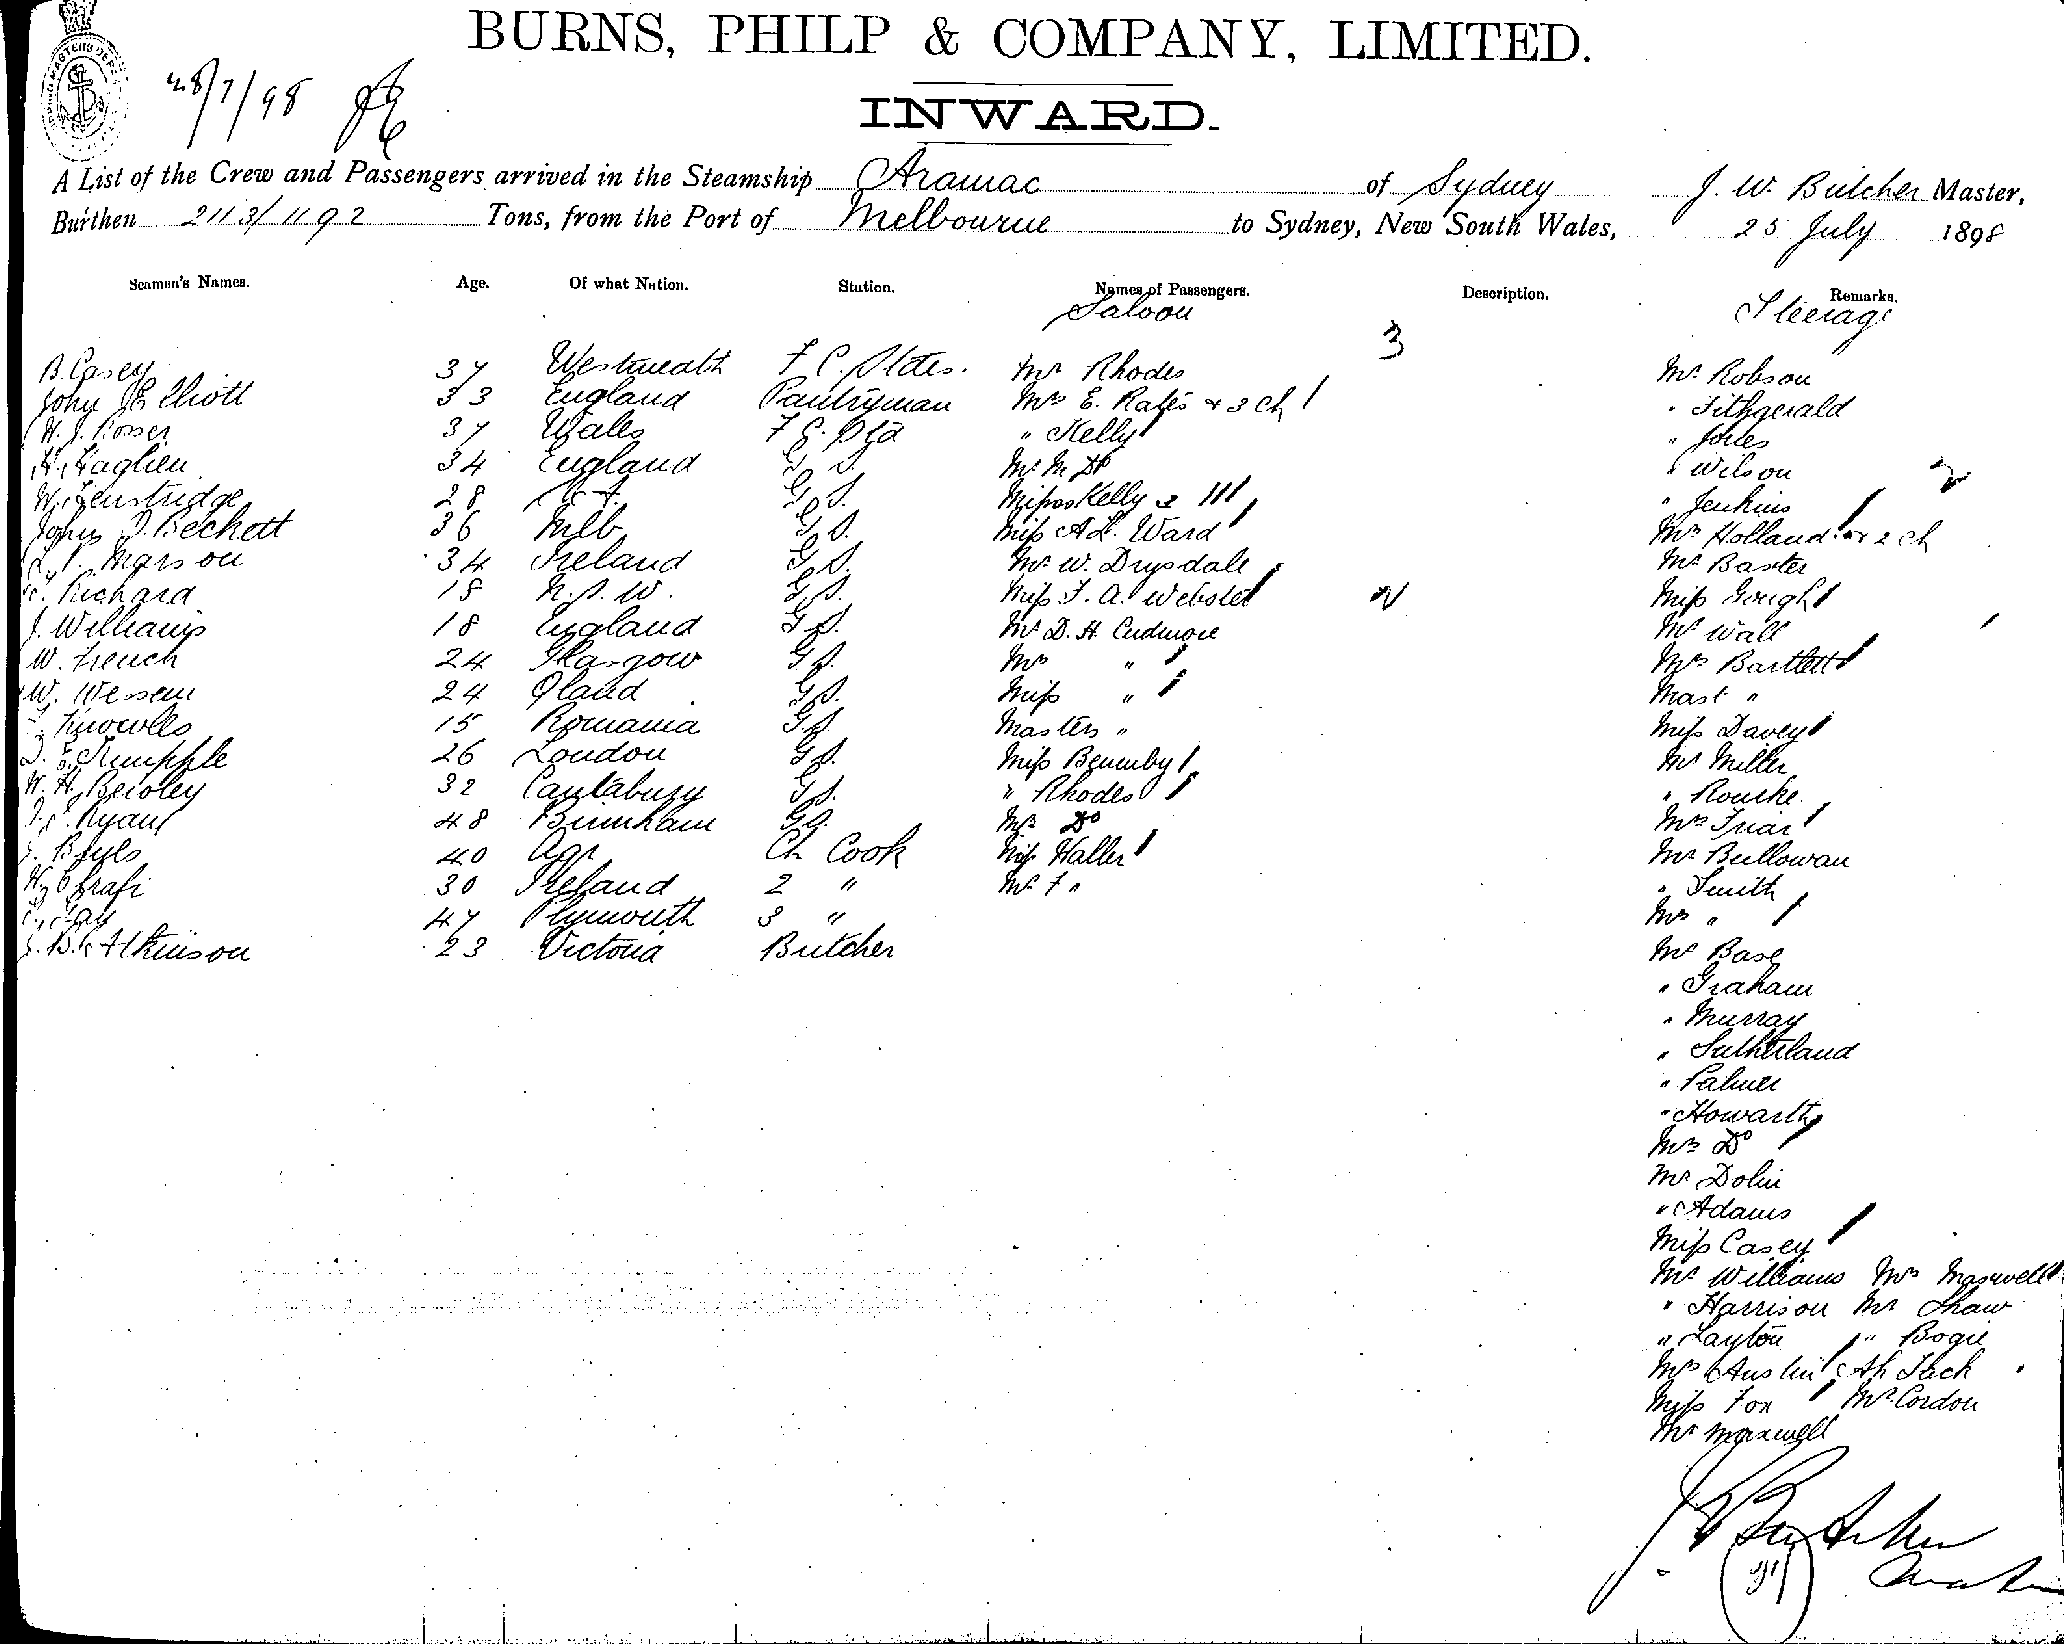 BURNS, PHILP & COMPANY, LIMITED.
28/7/98
INWARD.
A List of the Crew and Passengers arrived in the Steamship Aramac of Sydney J. W. Butcher Master,
Burthen 2113/1192 Tons, from the Port of Melbourne to Sydney, New South Wales, 25 July 1898
Seamen's Names. Age. Of what Nation. Station. Names of Passengers. Description. Remarks.
Saloon Steerage
3
B. Casey 37 Westmeath Mr Rhodes Mr Robson
John J Elliott 33 England Pantryman Mrs E. Rafes & 3 ch " Fithgerald
H. J. Rosser 37 Wales " Kelly " Jones
34 England G S. Mr M Do " Wilson 2
28 G S. Misses Kelly " Jenkins
John J. Beckett 36 Mlb G S. Miss A L. Ward Mrs Holland & 2 ch
Marson 34 Ireland G S. Mr W. Drysdale Mr Baxter
Richard 18 N.S.W. G S. Miss F. A. Webster 2 Miss Gough
J. Williams 18 England G S. Mr D. H. Cudmore Mr Wall
W. French 24 Glasgow G S. Mrs " Mrs Bartlett
W. Wessem 24 Qland G S. Miss " Mast "
Knowlls 15 Romania G S. Masters " Miss Davey
26 London G S. Miss Mr Miller
W. H. Beioley 32 Cantabury G S. " Rhodes " Rourke
Ryan 48 Birmham G S. Mrs Do Mrs Friar
40 Ch Cook Miss Haller Mr Bullowan
30 Ireland 2 " Mr F " " Smith
47 Plymouth 3 " Mrs "
J. B. Atkinson 23 Victoria Butcher Mr Base
" Graham
" Murray
" Sutherland
" Palmer
" Howarth
Mrs Do
Mr Dolin
" Adams
Miss Casey
Mr Williams Mrs Maxwell
" Harrison Mr Shaw
" Layton " Bogie
Mrs Austin Ah Jack
Miss Fox Mr Cordon
Mr Maxwell
J W Butcher
Master